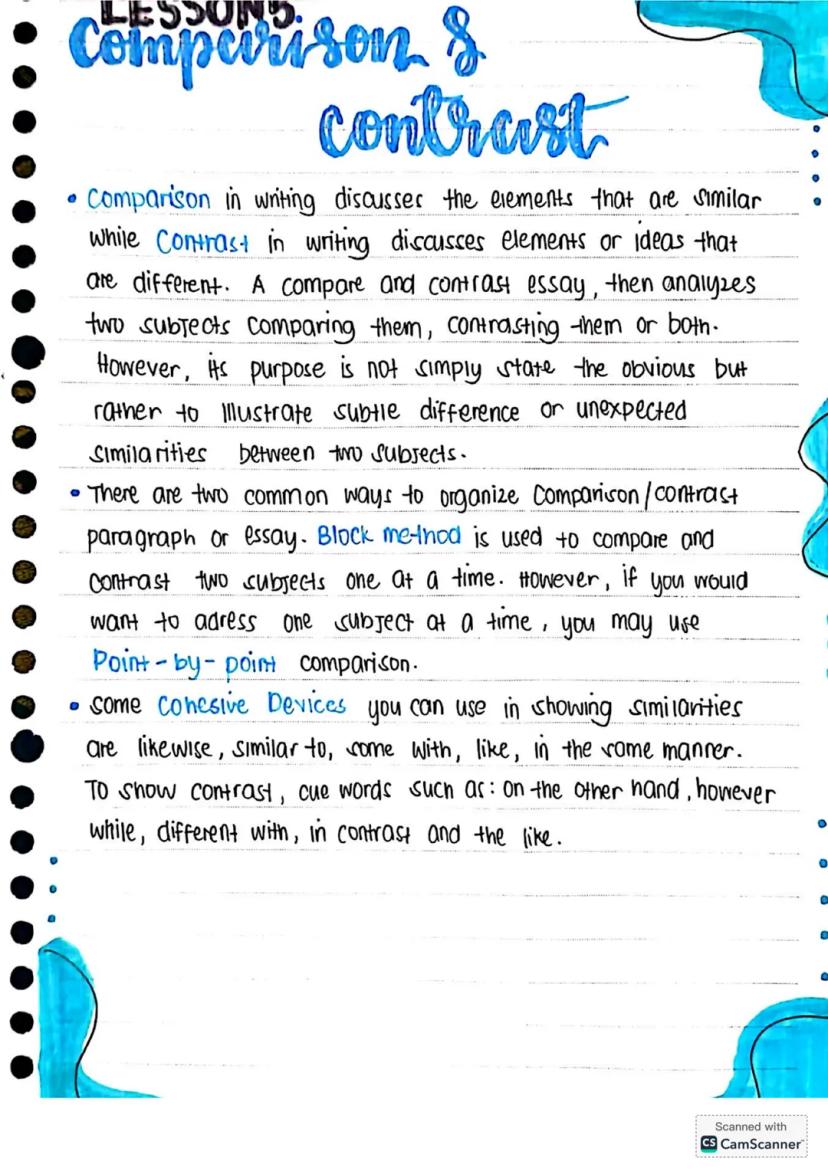 LESSON 5.
Comparison &
contrast
• Comparison in writing discusses the elements that are similar
while Contrast in writing discusses elements or ideas that
are different. A compare and contrast essay, then analyzes
two subjects comparing them, contrasting them or both.
However, its purpose is not simply state the obvious but
rather to Illustrate subtle difference or unexpected
similarities between two subjects.
• There are two common ways to organize comparison/contrast
paragraph or essay. Block method is used to compare and
contrast two subjects one at a time. However, if you would
want to adress one subject at a time, you may use
Point-by-point comparison.
• Some Cohesive Devices you can use in showing similarities
are likewise, similar to, same with, like, in the same manner.
To show contrast, cue words such as: on the other hand, however
while, different with, in contrast and the like.
Scanned with
CS CamScanner